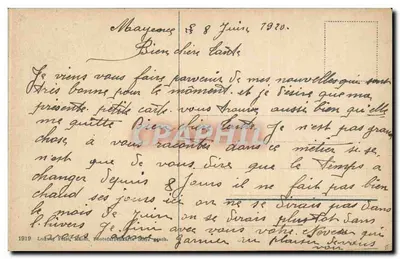 Mayence le 8 Juin 1920.
Bien chère tante
Je viens vous faire parvenir de mes nouvelles qui sont
très bonne pour le moment et je désire que ma
présente petite carte vous trouve aussi bien qu'elle
me quitte bien chère tante Je n'est pas grand
chose a vous raconter dans ce métier si se
n'est que de vous dire que le temps a
changer depuis 8 Jours il ne fait pas bien
chaud ses jours ici on ne se dirais pas dans
le mois de Juin on se dirais plustot dans
l'hivers Je finie avec vous votre Neveu qui
au plaisir de vous
voir
1919